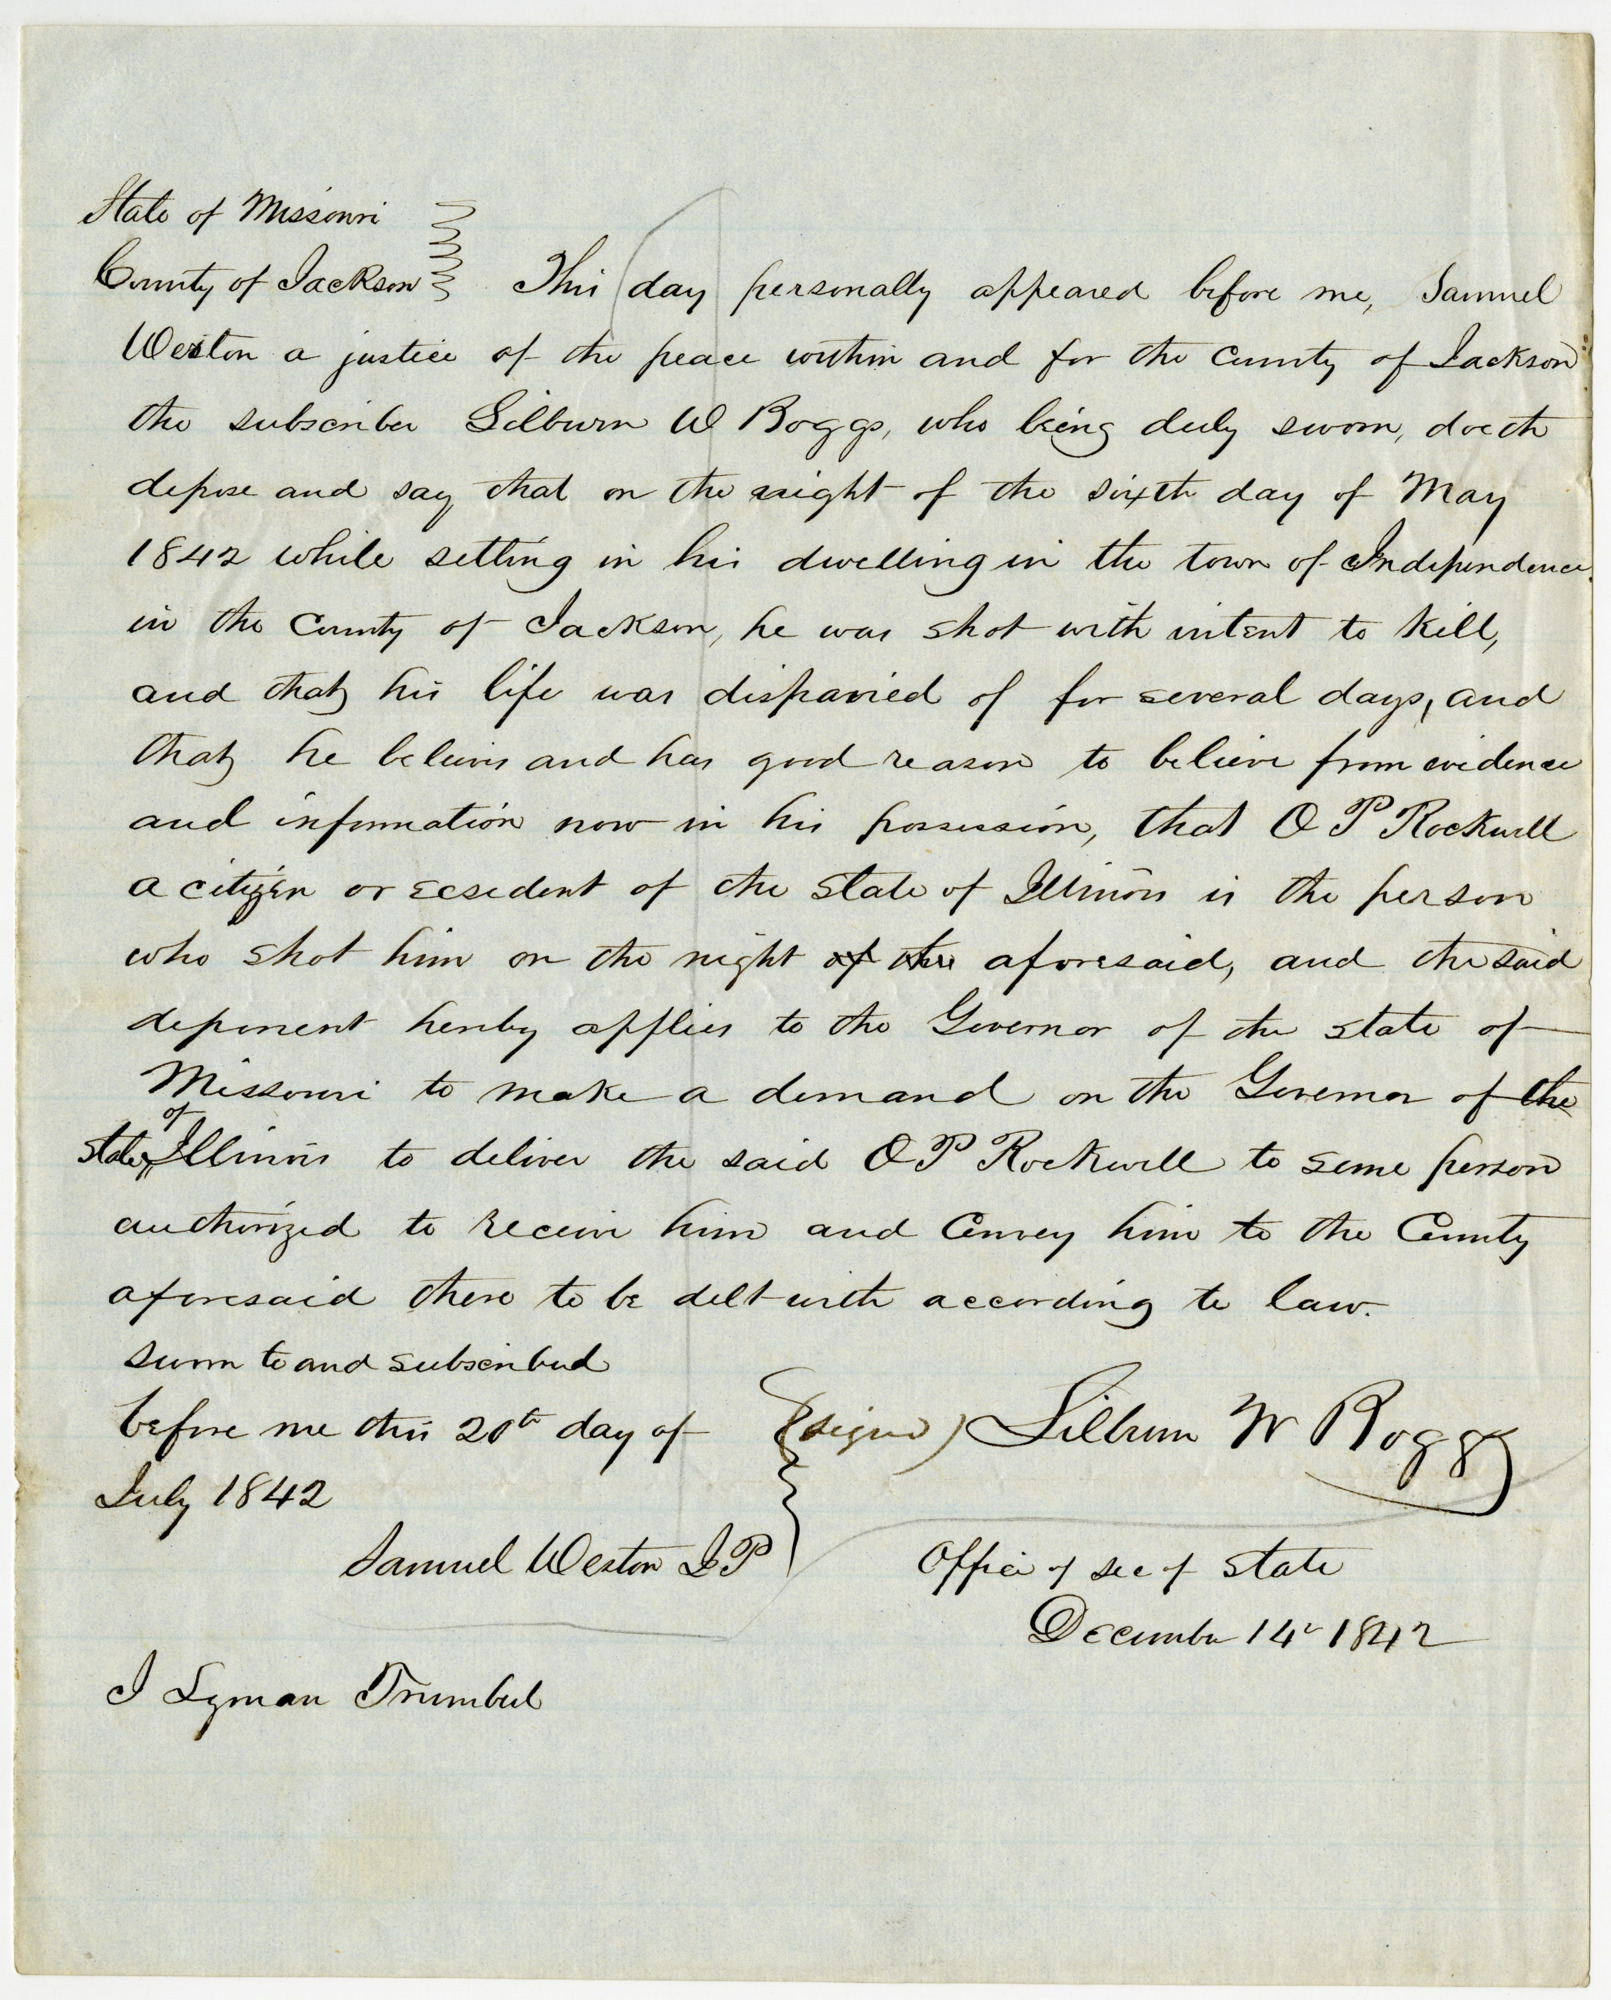 State of Missouri
County of Jackson This day personally appeared before me, Samuel
Weston a justice of the peace within and for the county of Jackson
the subscriber Lilburn W Boggs, who being duly sworn, doeth
depose and say that on the night of the sixth day of May
1842 while setting in his dwelling in the town of Independence
in the County of Jackson, he was shot with intent to kill,
and that his life was dispaired of for several days, and
that he believes and has good reason to believe from evidence
and information now in his possession, that O P Rockwell
a citizen or resident of the state of Illinois is the person
who shot him on the night of the aforesaid, and the said
deponent hereby applies to the Governor of the state of
Missouri to make a demand on the Governor of the
state of Illinois to deliver the said O P Rockwell to some person
authorized to receive him and convey him to the County
aforesaid there to be delt with according to law.
Sworn to and subscribed
before me this 20th day of (signed) Lilburn W Boggs
July 1842
Samuel Weston J P Office of sec of State
December 14th 1842
I Lyman Trumbul